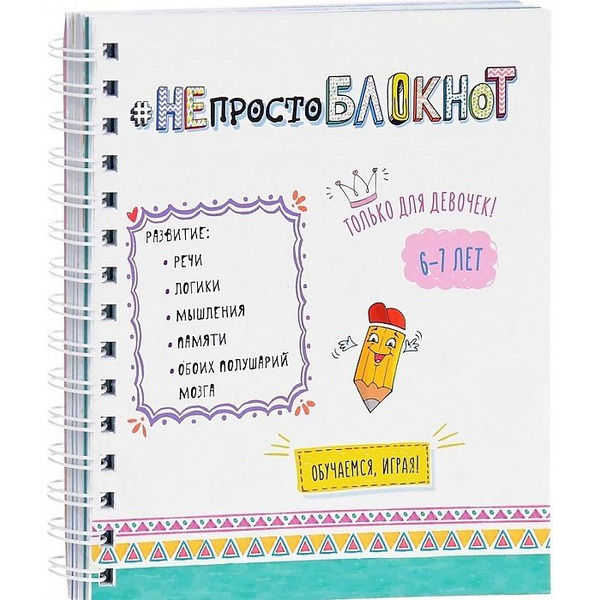 #НЕПРОСТОБЛОКНОТ
ТОЛЬКО ДЛЯ ДЕВОЧЕК!
6-7 ЛЕТ
РАЗВИТИЕ:
• РЕЧИ
• ЛОГИКИ
• МЫШЛЕНИЯ
• ПАМЯТИ
• ОБОИХ ПОЛУШАРИЙ
МОЗГА
ОБУЧАЕМСЯ, ИГРАЯ!